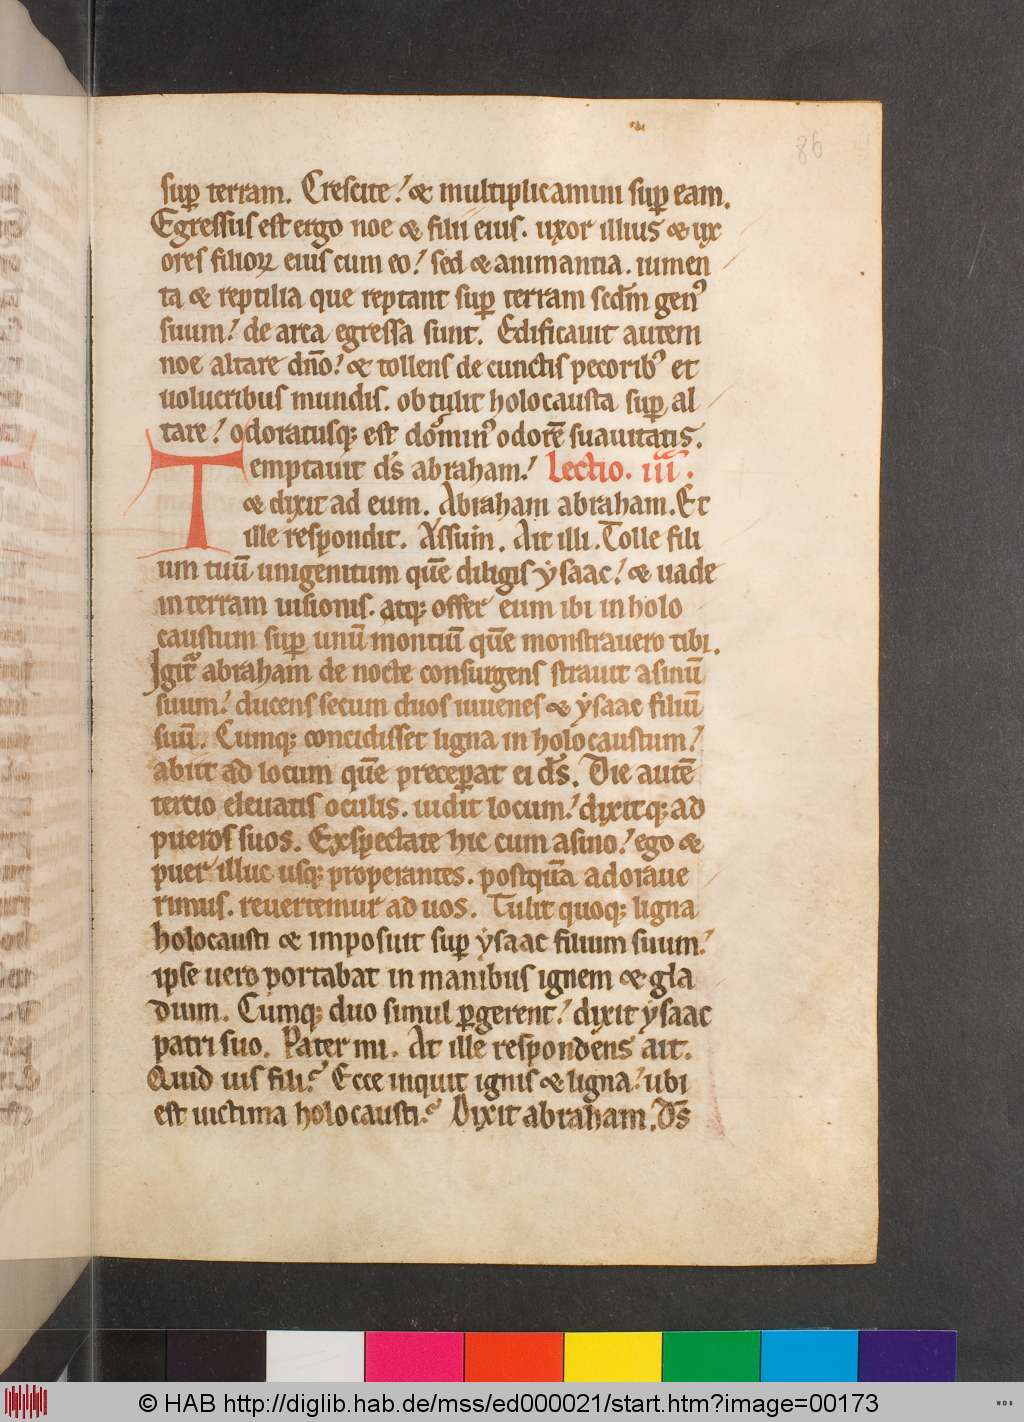 86
sup̲ terram. Crescite! & multiplicamini sup̲ eam.
Egressus est ergo noe & filii eius. uxor illius & ux
ores filioꝝ eius cum eo! sed & animantia. iumen
ta & reptilia que reptant sup̲ terram secdm̄ genꝰ
suum! de arca egressa sunt. Edificauit autem
noe altare dn̄o! & tollens de cunctis pecoribꝰ et
uolucribus mundis. obtulit holocausta sup̲ al
tare! odoratusqꝫ est dominꝰ odorē suauitatis.
Temptauit ds̄ abraham! Lectio. iii.
& dixit ad eum. Abraham abraham. Et
ille respondit. Assum. Ait illi. Tolle fili
um tuū unigenitum quē diligis ẏsaac! & uade
in terram uisionis. atqꝫ offer eum ibi in holo
caustum sup̲ unū montiū quē monstrauero tibi.
Igit᷑ abraham de nocte consurgens strauit asinū
suum! ducens secum duos iuuenes & ẏsaac filiū
suū. Cumqꝫ concidisset ligna in holocaustum!
abiit ad locum quē precep̲at ei ds̄. Die autē
tercio eleuatis oculis. uidit locum! dixitqꝫ ad
pueros suos. Exspectate hic cum asino! ego &
puer illuc usqꝫ properantes. postquā adoraue
rimus. reuertemur ad uos. Tulit quoqꝫ ligna
holocausti & imposuit sup̲ ẏsaac filium suum!
ipse uero portabat in manibus ignem & gla
dium. Cumqꝫ duo simul p̲gerent! dixit ẏsaac
patri suo. Pater mi. At ille respondens ait.
Quid uis fili? Ecce inquit ignis & ligna! ubi
est uictima holocausti? Dixit abraham. Ds̄
© HAB http://diglib.hab.de/mss/ed000021/start.htm?image=00173